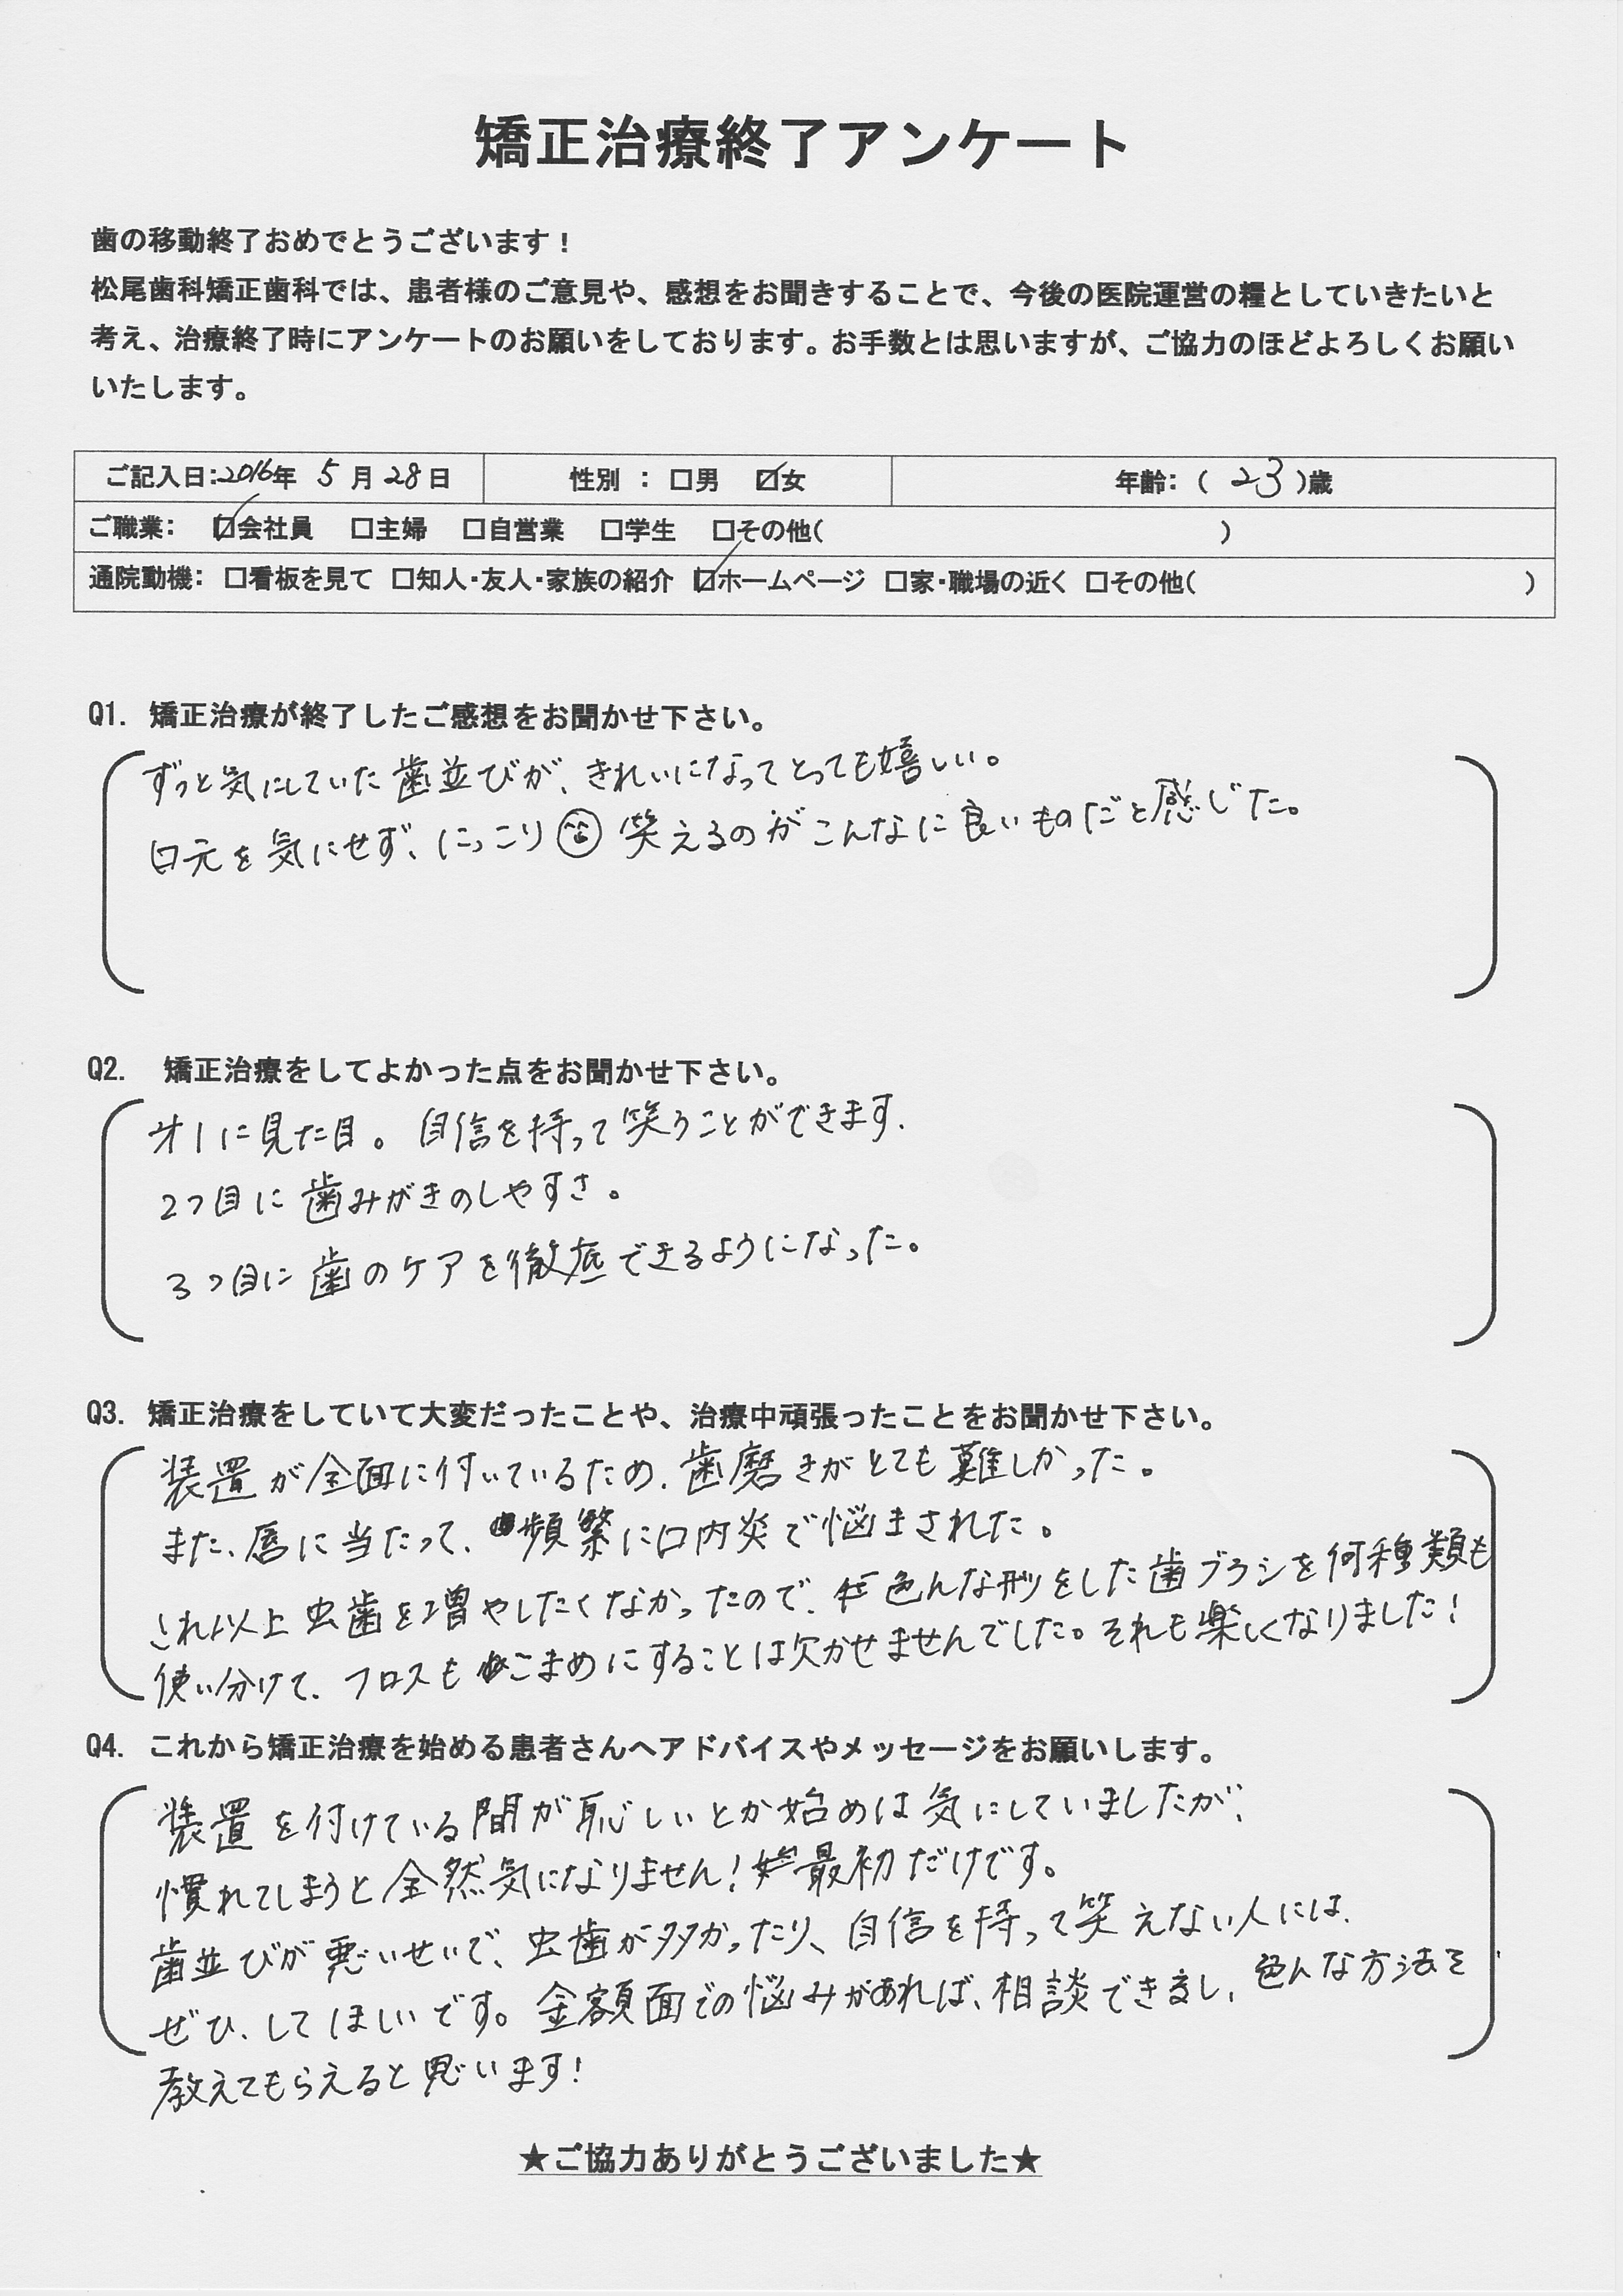 矯正治療終了アンケート
歯の移動終了おめでとうございます！
松尾歯科矯正歯科では、患者様のご意見や、感想をお聞きすることで、今後の医院運営の糧としていきたいと
考え、治療終了時にアンケートのお願いをしております。お手数とは思いますが、ご協力のほどよろしくお願い
いたします。
ご記入日：2016年 5月28日 性別 ： □男 ☑女 年齢：（ 23 ）歳
ご職業： ☑会社員 □主婦 □自営業 □学生 □その他（ ）
通院動機： □看板を見て □知人・友人・家族の紹介 ☑ホームページ □家・職場の近く □その他（ ）
Q1. 矯正治療が終了したご感想をお聞かせ下さい。
ずっと気にしていた歯並びが、きれいになってとっても嬉しい。
口元を気にせず、にっこり 笑えるのがこんなに良いものだと感じた。
Q2. 矯正治療をしてよかった点をお聞かせ下さい。
オ1に見た目。自信を持って笑うことができます.
2つ目に歯みがきのしやすさ。
3つ目に歯のケアを徹底できるようになった。
Q3. 矯正治療をしていて大変だったことや、治療中頑張ったことをお聞かせ下さい。
装置が全面に付いているため、歯磨きがとても難しかった。
また、唇に当たって、頻繁に口内炎で悩まされた。
これ以上虫歯を増やしたくなかったので、色んな形をした歯ブラシを何種類も
使い分けて、フロスもこまめにすることは欠かせませんでした。それも楽しくなりました！
Q4. これから矯正治療を始める患者さんへアドバイスやメッセージをお願いします。
装置を付けている間が恥しいとか始めは気にしていましたが、
慣れてしまうと全然気になりません！最初だけです。
歯並びが悪いせいで、虫歯が多かったり、自信を持って笑えない人には、
ぜひ、してほしいです。金額面での悩みがあれば、相談できますし、色んな方法を
教えてもらえると思います！
★ご協力ありがとうございました★